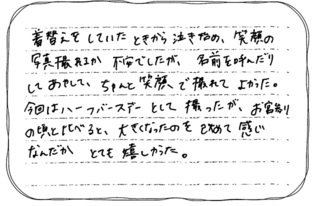 着替えをしていたときから泣き始め、笑顔の
写真撮れるか不安でしたが、名前を呼んだり
しておやして、ちゃんと笑顔で撮れてよかった。
今回はハーフバースデーとして撮ったが、お宮参り
の頃と比べると、大きくなったのを改めて感じ
なんだかとても嬉しかった。